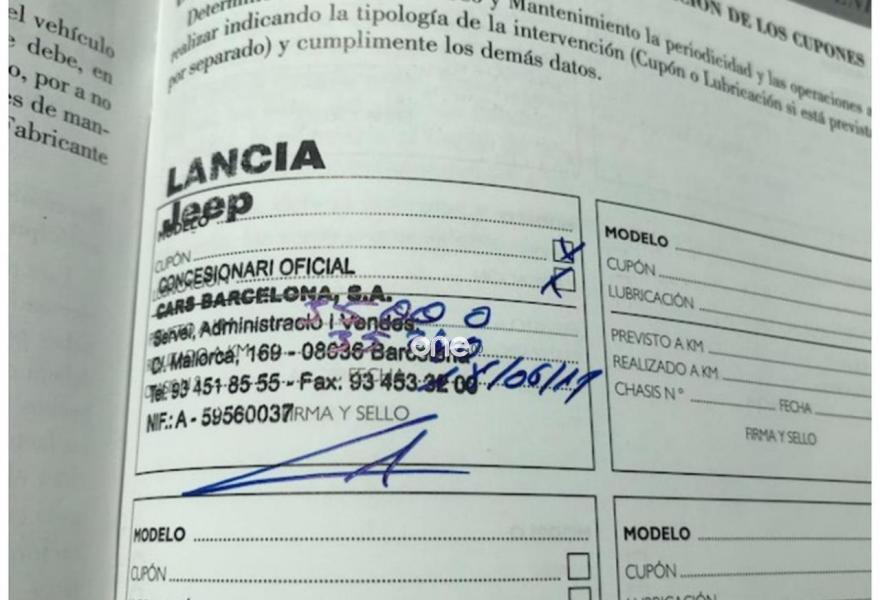 el vehículo
debe, en
o, por a no
s de man-
Fabricante
y Mantenimiento la periodicidad y las operaciones a
realizar indicando la tipología de la intervención (Cupón o Lubricación si está prevista
por separado) y cumplimente los demás datos.
DE LOS CUPONES
LANCIA
Jeep
MODELO
CUPÓN
CONCESIONARI OFICIAL
CARS BARCELONA, S.A.
35000
Servei, Administració i Vendes:
C/. Mallorca, 169 - 08036 Barcelona
one
FECHA
Tel. 93 451 85 55 - Fax: 93 453 32 00
/06/11
NIF.: A - 59560037
FIRMA Y SELLO
MODELO
CUPÓN
LUBRICACIÓN
PREVISTO A KM
REALIZADO A KM
CHASIS N°
FECHA
FIRMA Y SELLO
MODELO
CUPÓN
MODELO
CUPÓN
LUBRICACIÓN